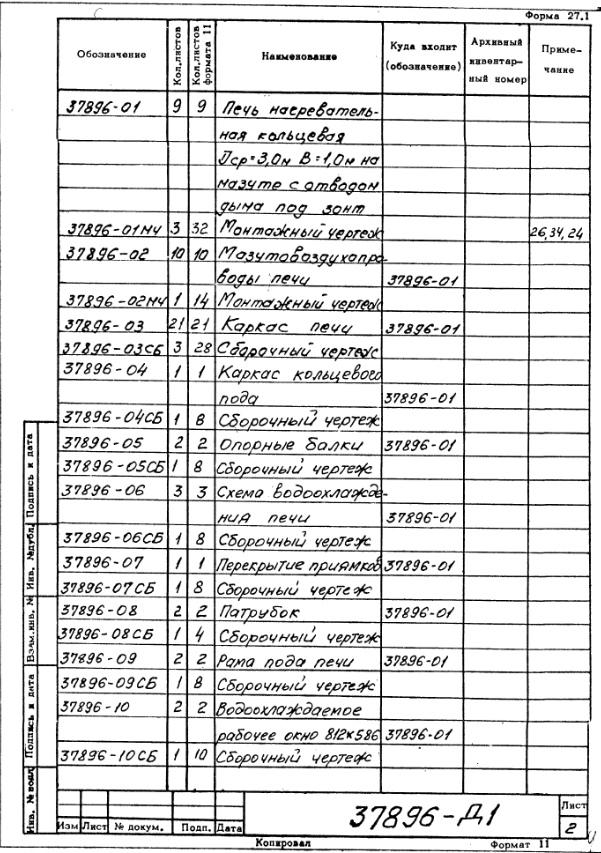 Форма 27.1
Обозначение Кол.листов Кол.листов формата 11 Наименование Куда входит (обозначение) Архивный инвентарный номер Примечание
37896-01 9 9 Печь нагреватель-
ная кольцевая
Dср=3,0м В=1,0м на
мазуте с отводом
дыма под зонт
37896-01МЧ 3 32 Монтажный чертеж 26,34,24
37896-02 10 10 Мазутовоздухопро-
воды печи 37896-01
37896-02МЧ 1 14 Монтажный чертеж
37896-03 21 21 Каркас печи 37896-01
37896-03СБ 3 28 Сборочный чертеж
37896-04 1 1 Каркас кольцевого
пода 37896-01
37896-04СБ 1 8 Сборочный чертеж
37896-05 2 2 Опорные балки 37896-01
37896-05СБ 1 8 Сборочный чертеж
37896-06 3 3 Схема водоохлажде-
ния печи 37896-01
37896-06СБ 1 8 Сборочный чертеж
37896-07 1 1 Перекрытие приямков 37896-01
37896-07СБ 1 8 Сборочный чертеж
37896-08 2 2 Патрубок 37896-01
37896-08СБ 1 4 Сборочный чертеж
37896-09 2 2 Рама пода печи 37896-01
37896-09СБ 1 8 Сборочный чертеж
37896-10 2 2 Водоохлаждаемое
рабочее окно 812×586 37896-01
37896-10СБ 1 10 Сборочный чертеж
Подпись и дата
Инв. №дубл.
Взам.инв. №
Подпись и дата
Инв. №подл
37896-Д1
Лист
2
Изм Лист № докум. Подп. Дата
Копировал Формат 11